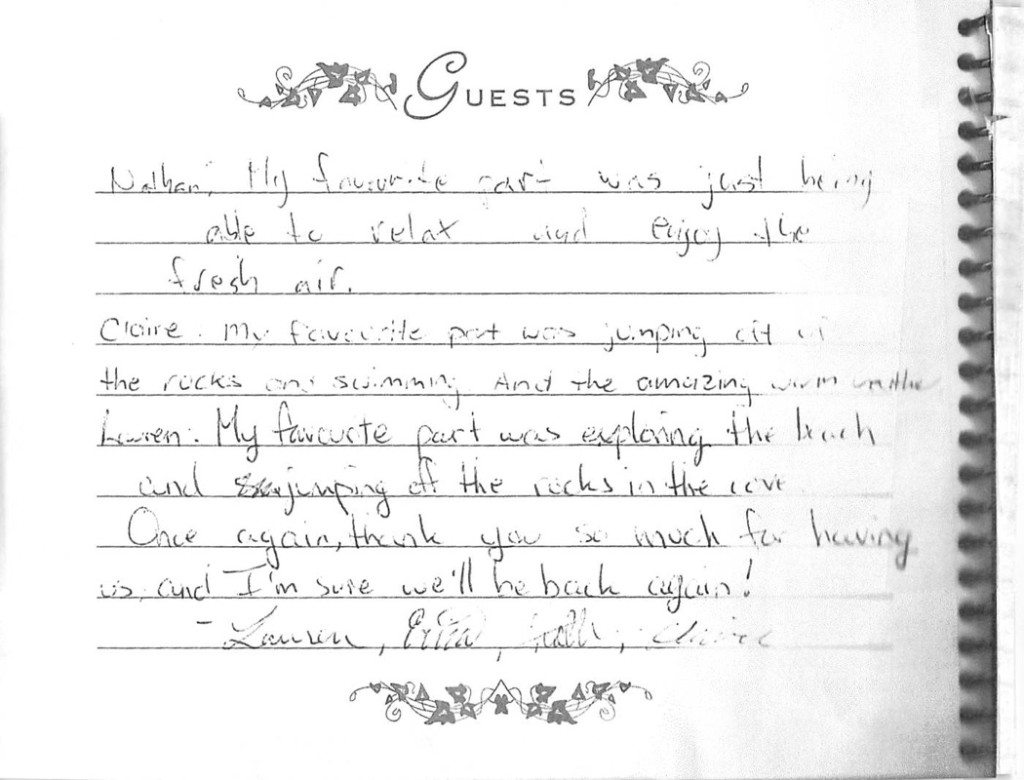 GUESTS
Nathan: My favourite part was just being
able to relax and enjoy the
fresh air.
Claire: My favourite part was jumping off of
the rocks and swimming. And the amazing warm weather
Lauren: My favourite part was exploring the beach
and jumping off the rocks in the cove.
Once again, thank you so much for having
us, and I'm sure we'll be back again!
- Lauren, Erica, Claire